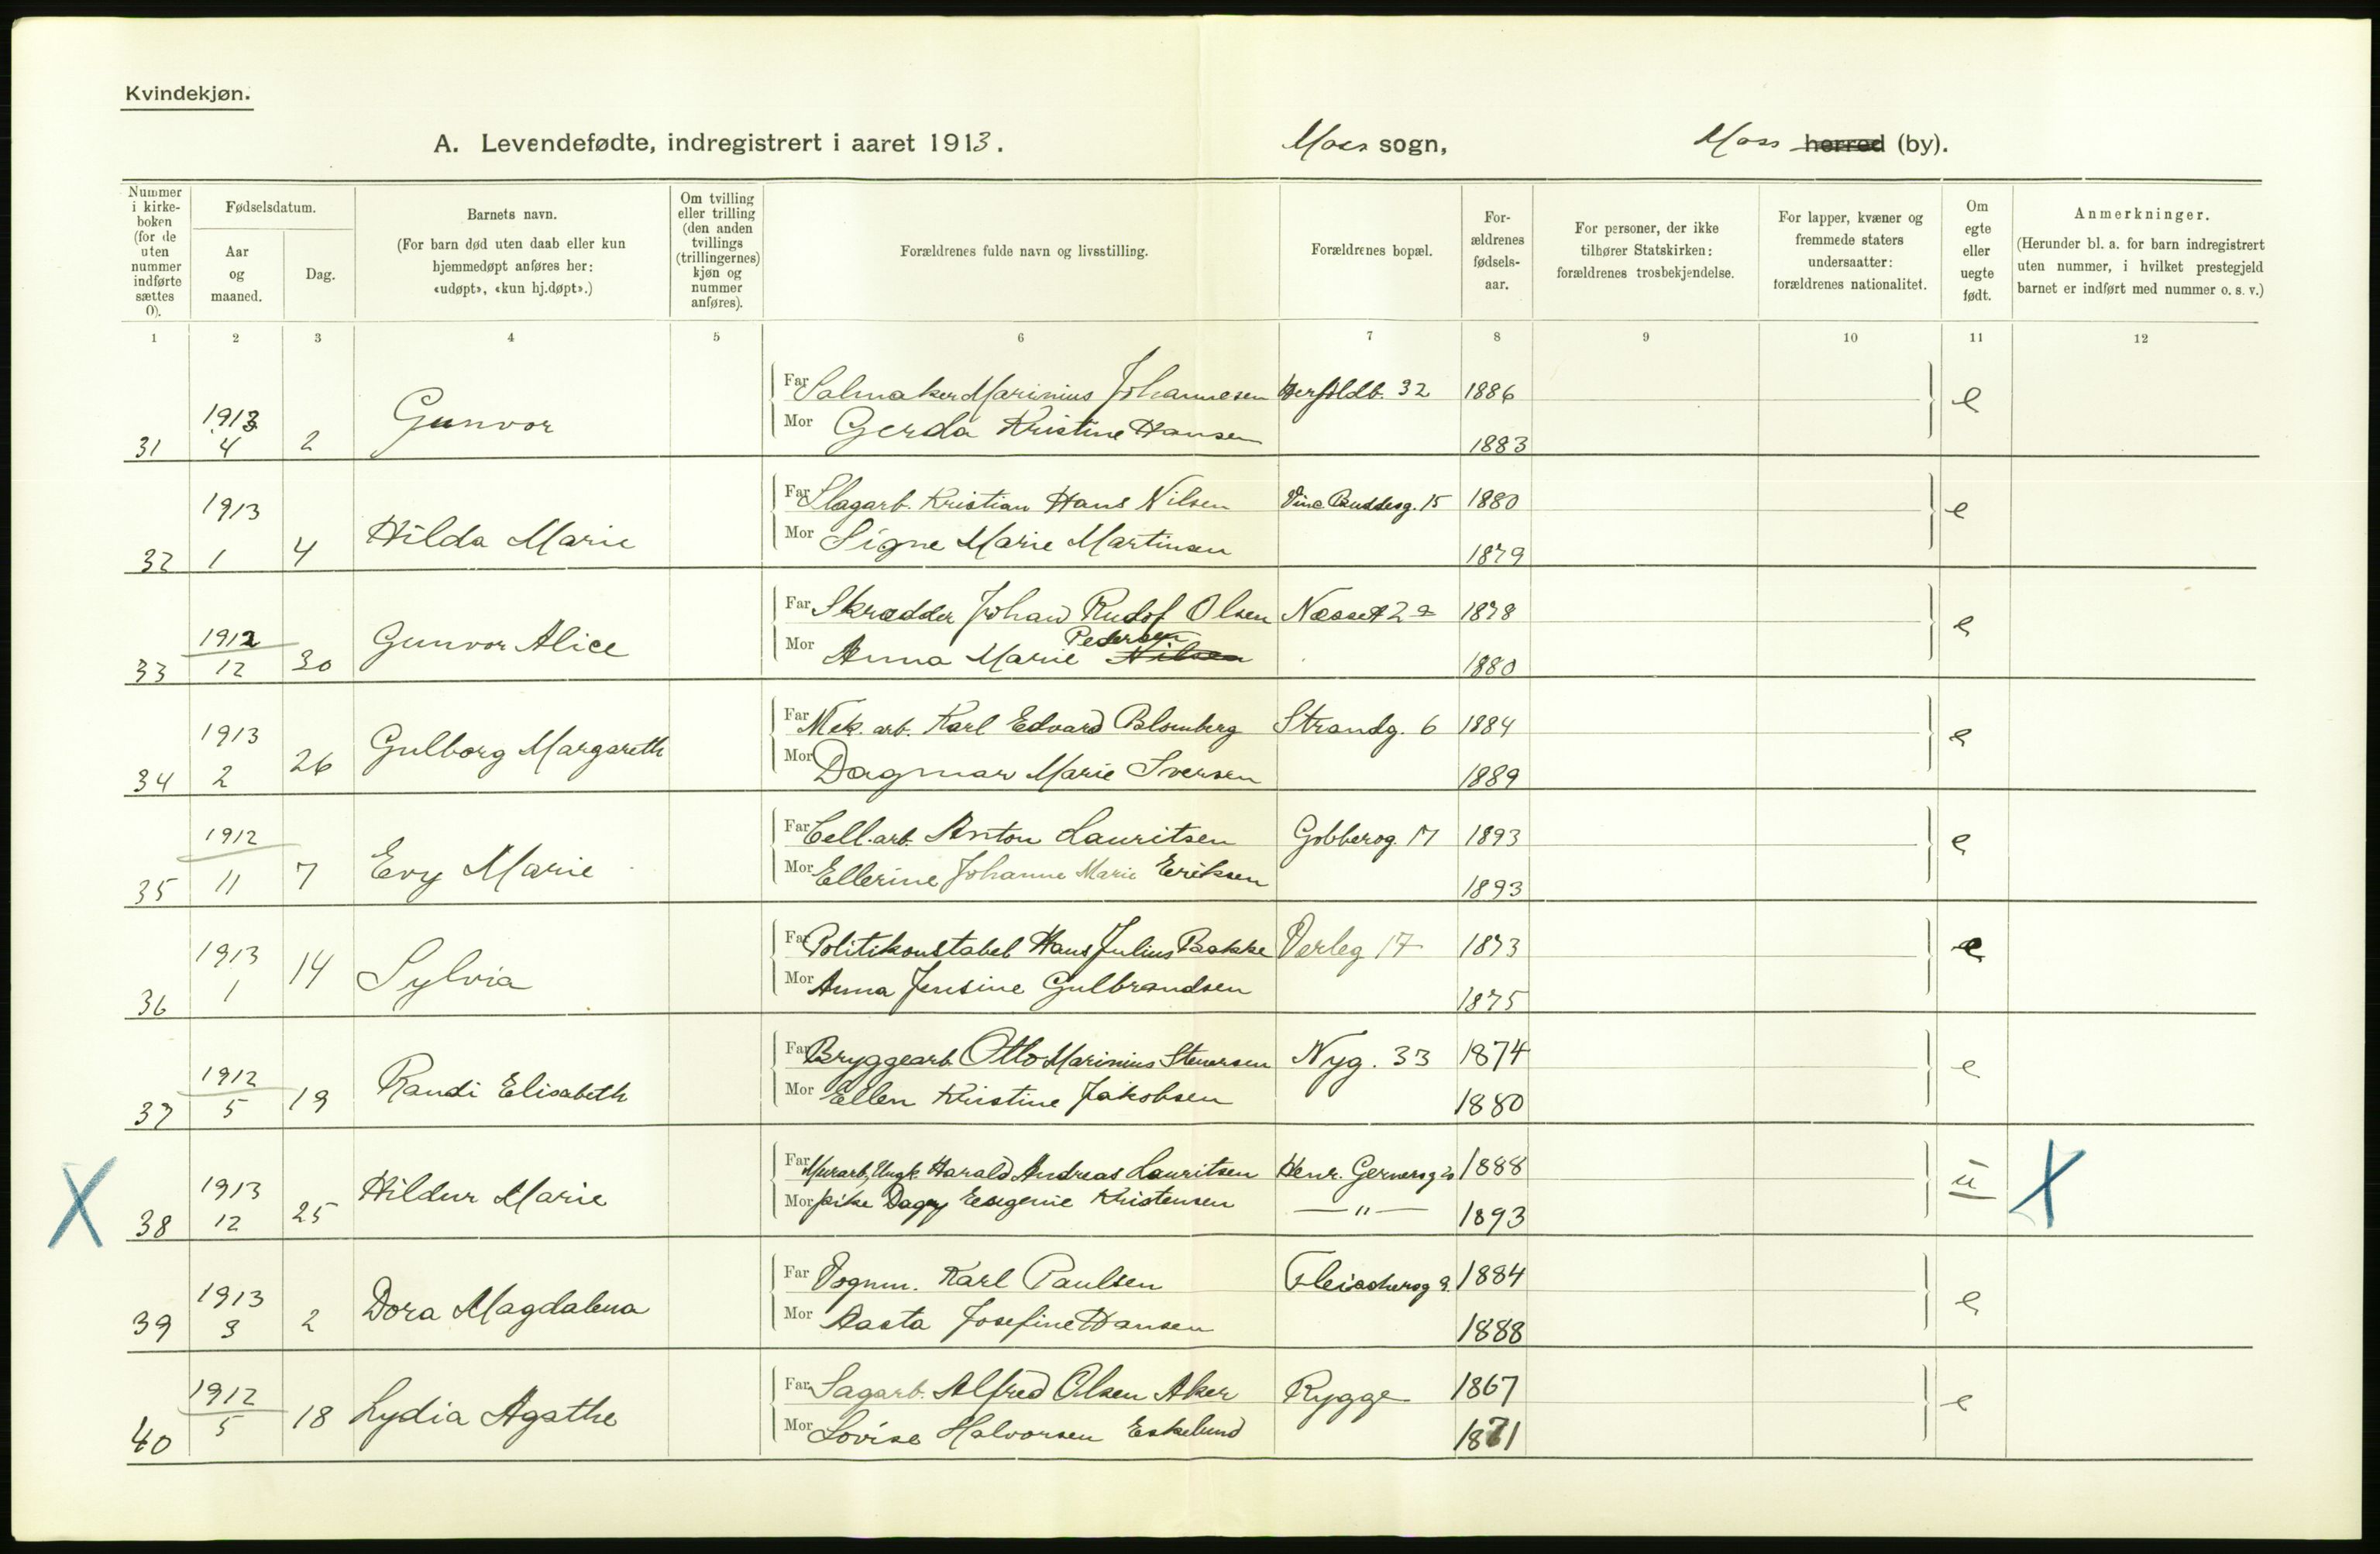 Kvindekjøn.
A. Levendefødte, indregistrert i aaret 1913. Moss sogn, Moss herred (by).
Nummer i kirkeboken (for de uten nummer indførte sættes 0).
Fødselsdatum.
Aar og maaned.
Dag.
Barnets navn.
(For barn død uten daab eller kun hjemmedøpt anføres her: «udøpt», «kun hj.døpt».)
Om tvilling eller trilling (den anden tvillings (trillingernes) kjøn og nummer anføres).
Forældrenes fulde navn og livsstilling.
Forældrenes bopæl.
Forældrenes fødselsaar.
For personer, der ikke tilhører Statskirken: forældrenes trosbekjendelse.
For lapper, kvæner og fremmede staters undersaatter: forældrenes nationalitet.
Om egte eller uegte født.
Anmerkninger.
(Herunder bl. a. for barn indregistrert uten nummer, i hvilket prestegjeld barnet er indført med nummer o. s. v.)
1 2 3 4 5 6 7 8 9 10 11 12
31 1913 4 2 Gunvor
Far Salmaker Marinius Johannesen 32 1886 e
Mor Gerda Kristine Hansen 1883
32 1913 1 4 Hilda Marie
Far Kristian Hans Nilsen 15 1880 e
Mor Signe Marie Martinsen 1879
33 1912 12 30 Gunvor Alice
Far Skrædder Johan Rudof Olsen 1878 e
Mor Anna Marie Nilsen Pedersen 1880
34 1913 2 26 Gulborg Margareth
Far Mek. arb. Karl Edvard Blomberg Strandg. 6 1884 e
Mor Dagmar Marie Iversen 1889
35 1912 11 7 Evy Marie
Far Cell.arb. Anton Lauritsen 1893 e
Mor Ellerine Johanne Marie Eriksen 1893
36 1913 1 14 Sylvia
Far Politikonstabel Hans Julius Bakke Værleg 17 1873 e
Mor Anna Jensine Gulbrandsen 1875
37 1912 5 19 Randi Elisabeth
Far Bryggearb. Otto Marinius Stenersen Nyg. 33 1874 e
Mor Ellen Kristine Jakobsen 1880
X 38 1913 12 25 Hildur Marie
Far Murarb, Ungk. Harald Andreas Lauritsen Henr. Gernersg 1888 u X
Mor pike Dagny Eugenie Kristensen — " — 1893
39 1913 3 2 Dora Magdalena
Far Vognm. Karl Paulsen Fleischersg 9. 1884 e
Mor Aasta Josefine Hansen 1888
40 1912 5 18 Lydia Agathe
Far Sagarb. Alfred Olsen Aker Rygge 1867 e
Mor Lovise Halvorsen Eskelund 1871